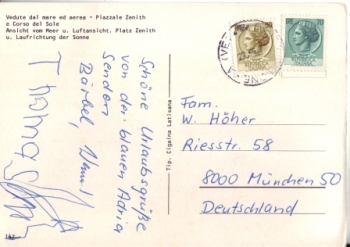 Vedute dal mare ed aerea - Piazzale Zenith
e Corso del Sole
Ansicht vom Meer u. Luftansicht. Platz Zenith
u. Laufrichtung der Sonne
Schöne Urlaubsgrüße
von der blauen Adria
senden
Bärbel,
Thomas
Tip. Cigaina Latisana
Fam.
W. Höher
Riesstr. 58
8000 München 50
Deutschland